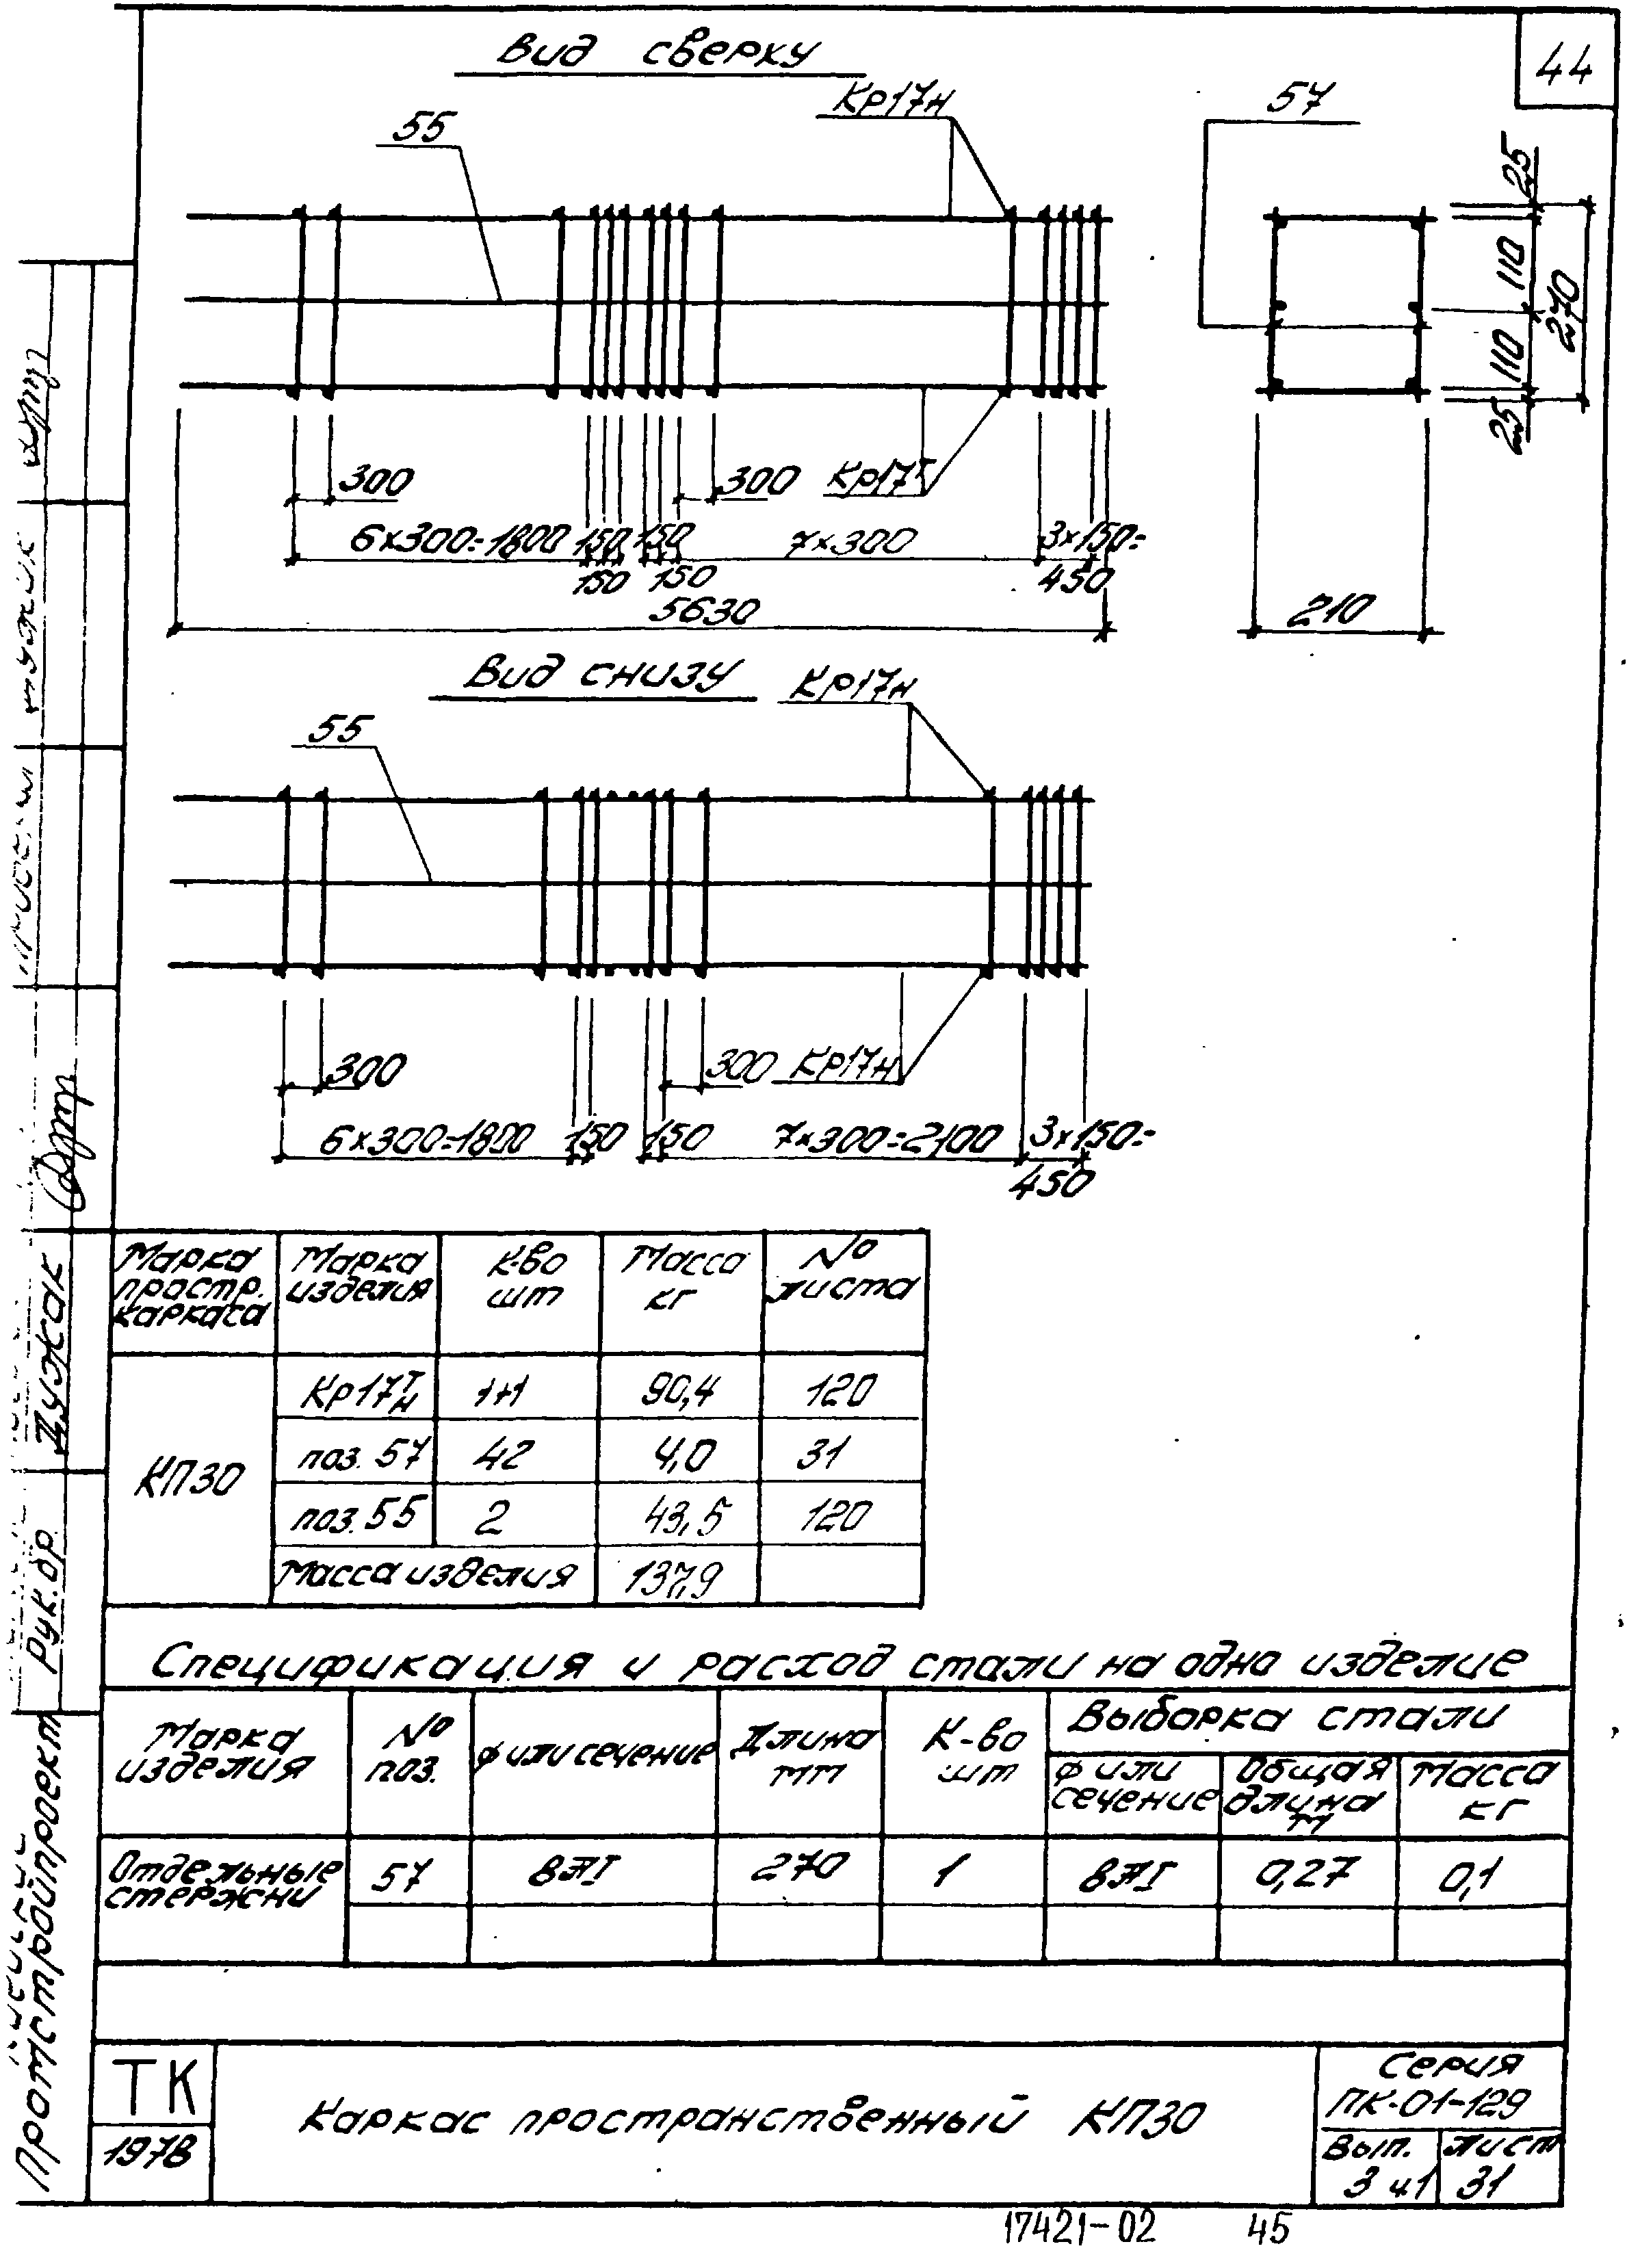 44
Вид сверху
Кр17н
55
57
25
110
270
110
25
300
300
Кр17т
6×300=1800
150
150
7×300
3×150=
150
150
450
5630
210
Вид снизу
Кр17н
55
300
300
Кр17н
6×300=1800
150
150
7×300=2100
3×150=
450
Марка простр. каркаса
Марка изделия
К-во шт
Масса кг
№ листа
КП30
Кр17т/н 1+1 90,4 120
поз. 57 42 4,0 31
поз. 55 2 43,5 120
Масса изделия 137,9
Спецификация и расход стали на одно изделие
Марка изделия
№ поз.
ф или сечение
Длина мм
К-во шт
Выборка стали
ф или сечение
Общая длина м
Масса кг
Отдельные стержни
57 8АI 270 1 8АI 0,27 0,1
ТК
1978
Каркас пространственный КП30
Серия
ПК-01-129
Вып.
3 ч1
Лист
31
17421-02
45
Рук. бр.
Дужак
Промстройпроект